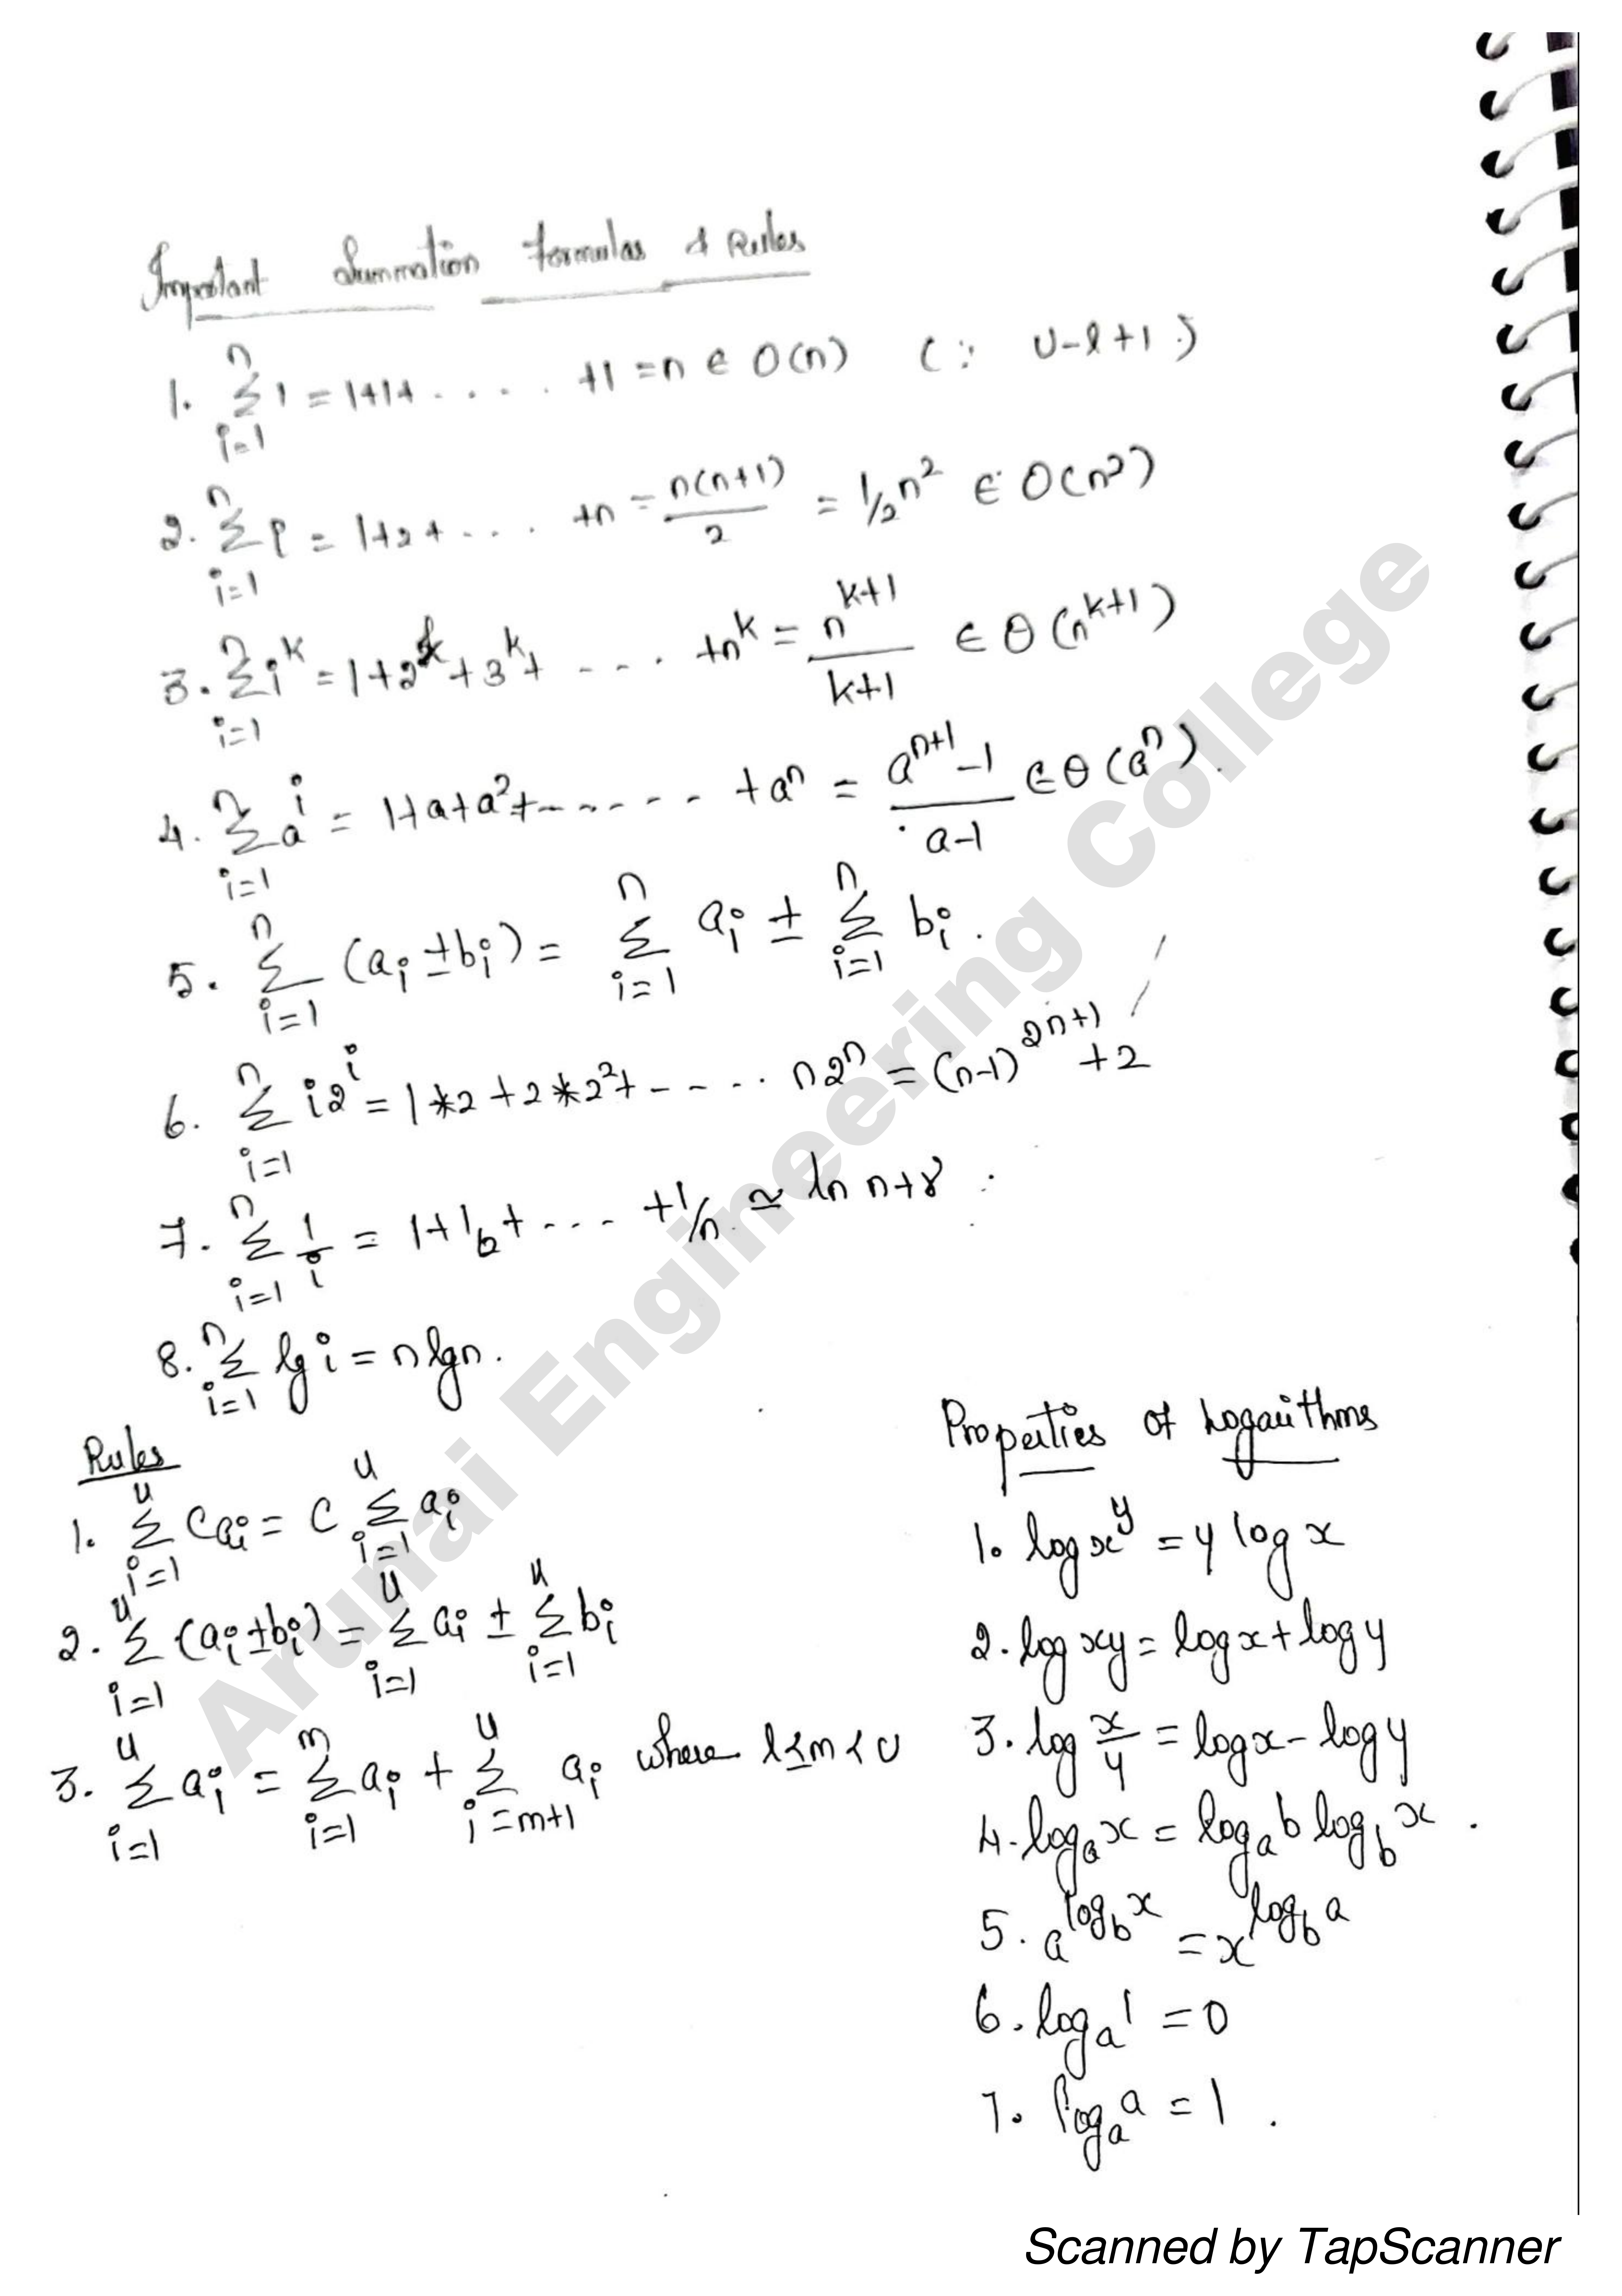 Important Summation Formulas & Rules
1. n Σ i=1 1 = 1+1+ . . . . . +1 = n ∈ O(n) (∵ U-l+1 )
2. n Σ i=1 i = 1+2+ . . . +n = n(n+1)/2 = 1/2 n² ∈ O(n²)
3. n Σ i=1 i^k = 1+2^k+3^k+ - - - . +n^k = n^(k+1)/k+1 ∈ Θ(n^(k+1))
4. n Σ i=1 a^i = 1+a+a²+------ +a^n = a^(n+1)-1/a-1 ∈ Θ(a^n).
5. n Σ i=1 (a_i ± b_i) = n Σ i=1 a_i ± n Σ i=1 b_i.
6. n Σ i=1 i2^i = 1*2+2*2²+----. n2^n = (n-1)^(2n+1) +2
7. n Σ i=1 1/i = 1+1/2+ --- +1/n ≃ ln n+γ
8. n Σ i=1 lg i = n lg n.
Rules
1. u Σ i=1 C a_i = C u Σ i=1 a_i
2. u Σ i=1 (a_i ± b_i) = u Σ i=1 a_i ± u Σ i=1 b_i
3. u Σ i=1 a_i = m Σ i=1 a_i + u Σ i=m+1 a_i where l≤m<U
Properties of Logarithms
1. log x^y = y log x
2. log xy = log x + log y
3. log x/y = log x - log y
4. log_a x = log_a b log_b x .
5. a^(log_b x) = x^(log_b a)
6. log_a 1 = 0
7. log_a a = 1 .
Arunai Engineering College
Scanned by TapScanner